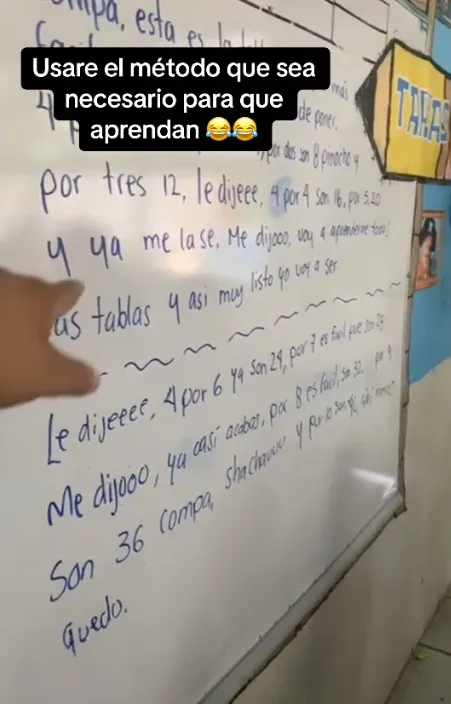 compa, esta es la
Usare el método que sea
necesario para que
aprendan 😂😂
más
de poner.
TARAS
por dos son 8 pinocho y
por tres 12, le dijeee, 4 por 4 son 16, por 5, 20
y ya me la se. Me dijooo, voy a aprenderme todas
las tablas y asi muy listo yo voy a ser.
Le dijeeee, 4 por 6 ya son 24, por 7 es facil pue son 28
Me dijooo, ya casi acabas, por 8 es facil, son 32. por 9
Son 36 compa, y por 10 son 40, ahi nomas
quedo.